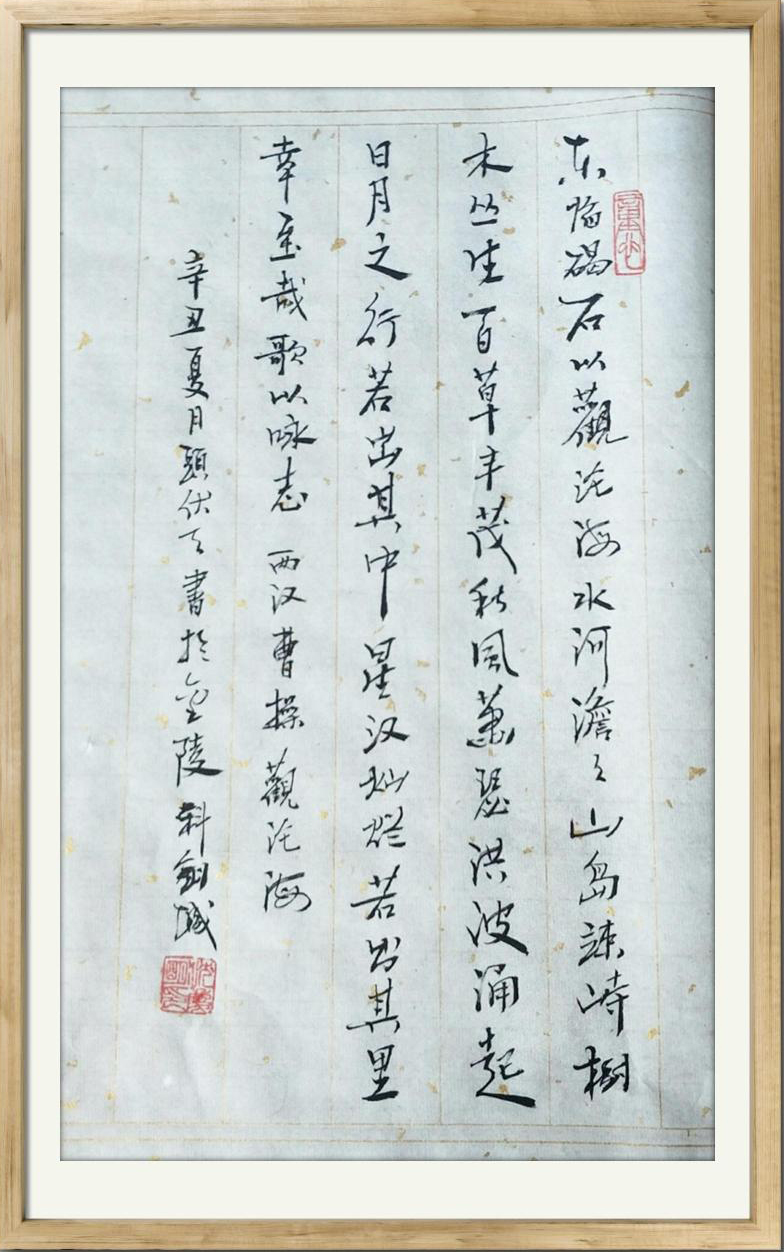 东临碣石以觀沧海水河澹々山岛竦峙樹
木丛生百草丰茂秋風萧瑟洪波涌起
日月之行若出其中星汉灿烂若出其里
幸至哉歌以咏志 西汉曹操觀沧海
辛丑夏月頭伏天書於金陵